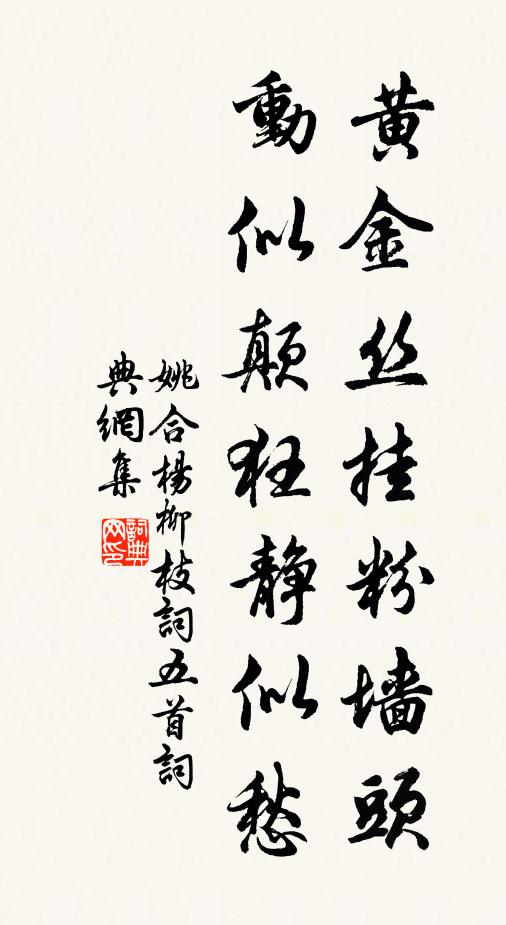 黄金丝挂粉墙頭
動似颠狂静似愁
姚合楊柳枝詞五首詞
典網集
詞典网印